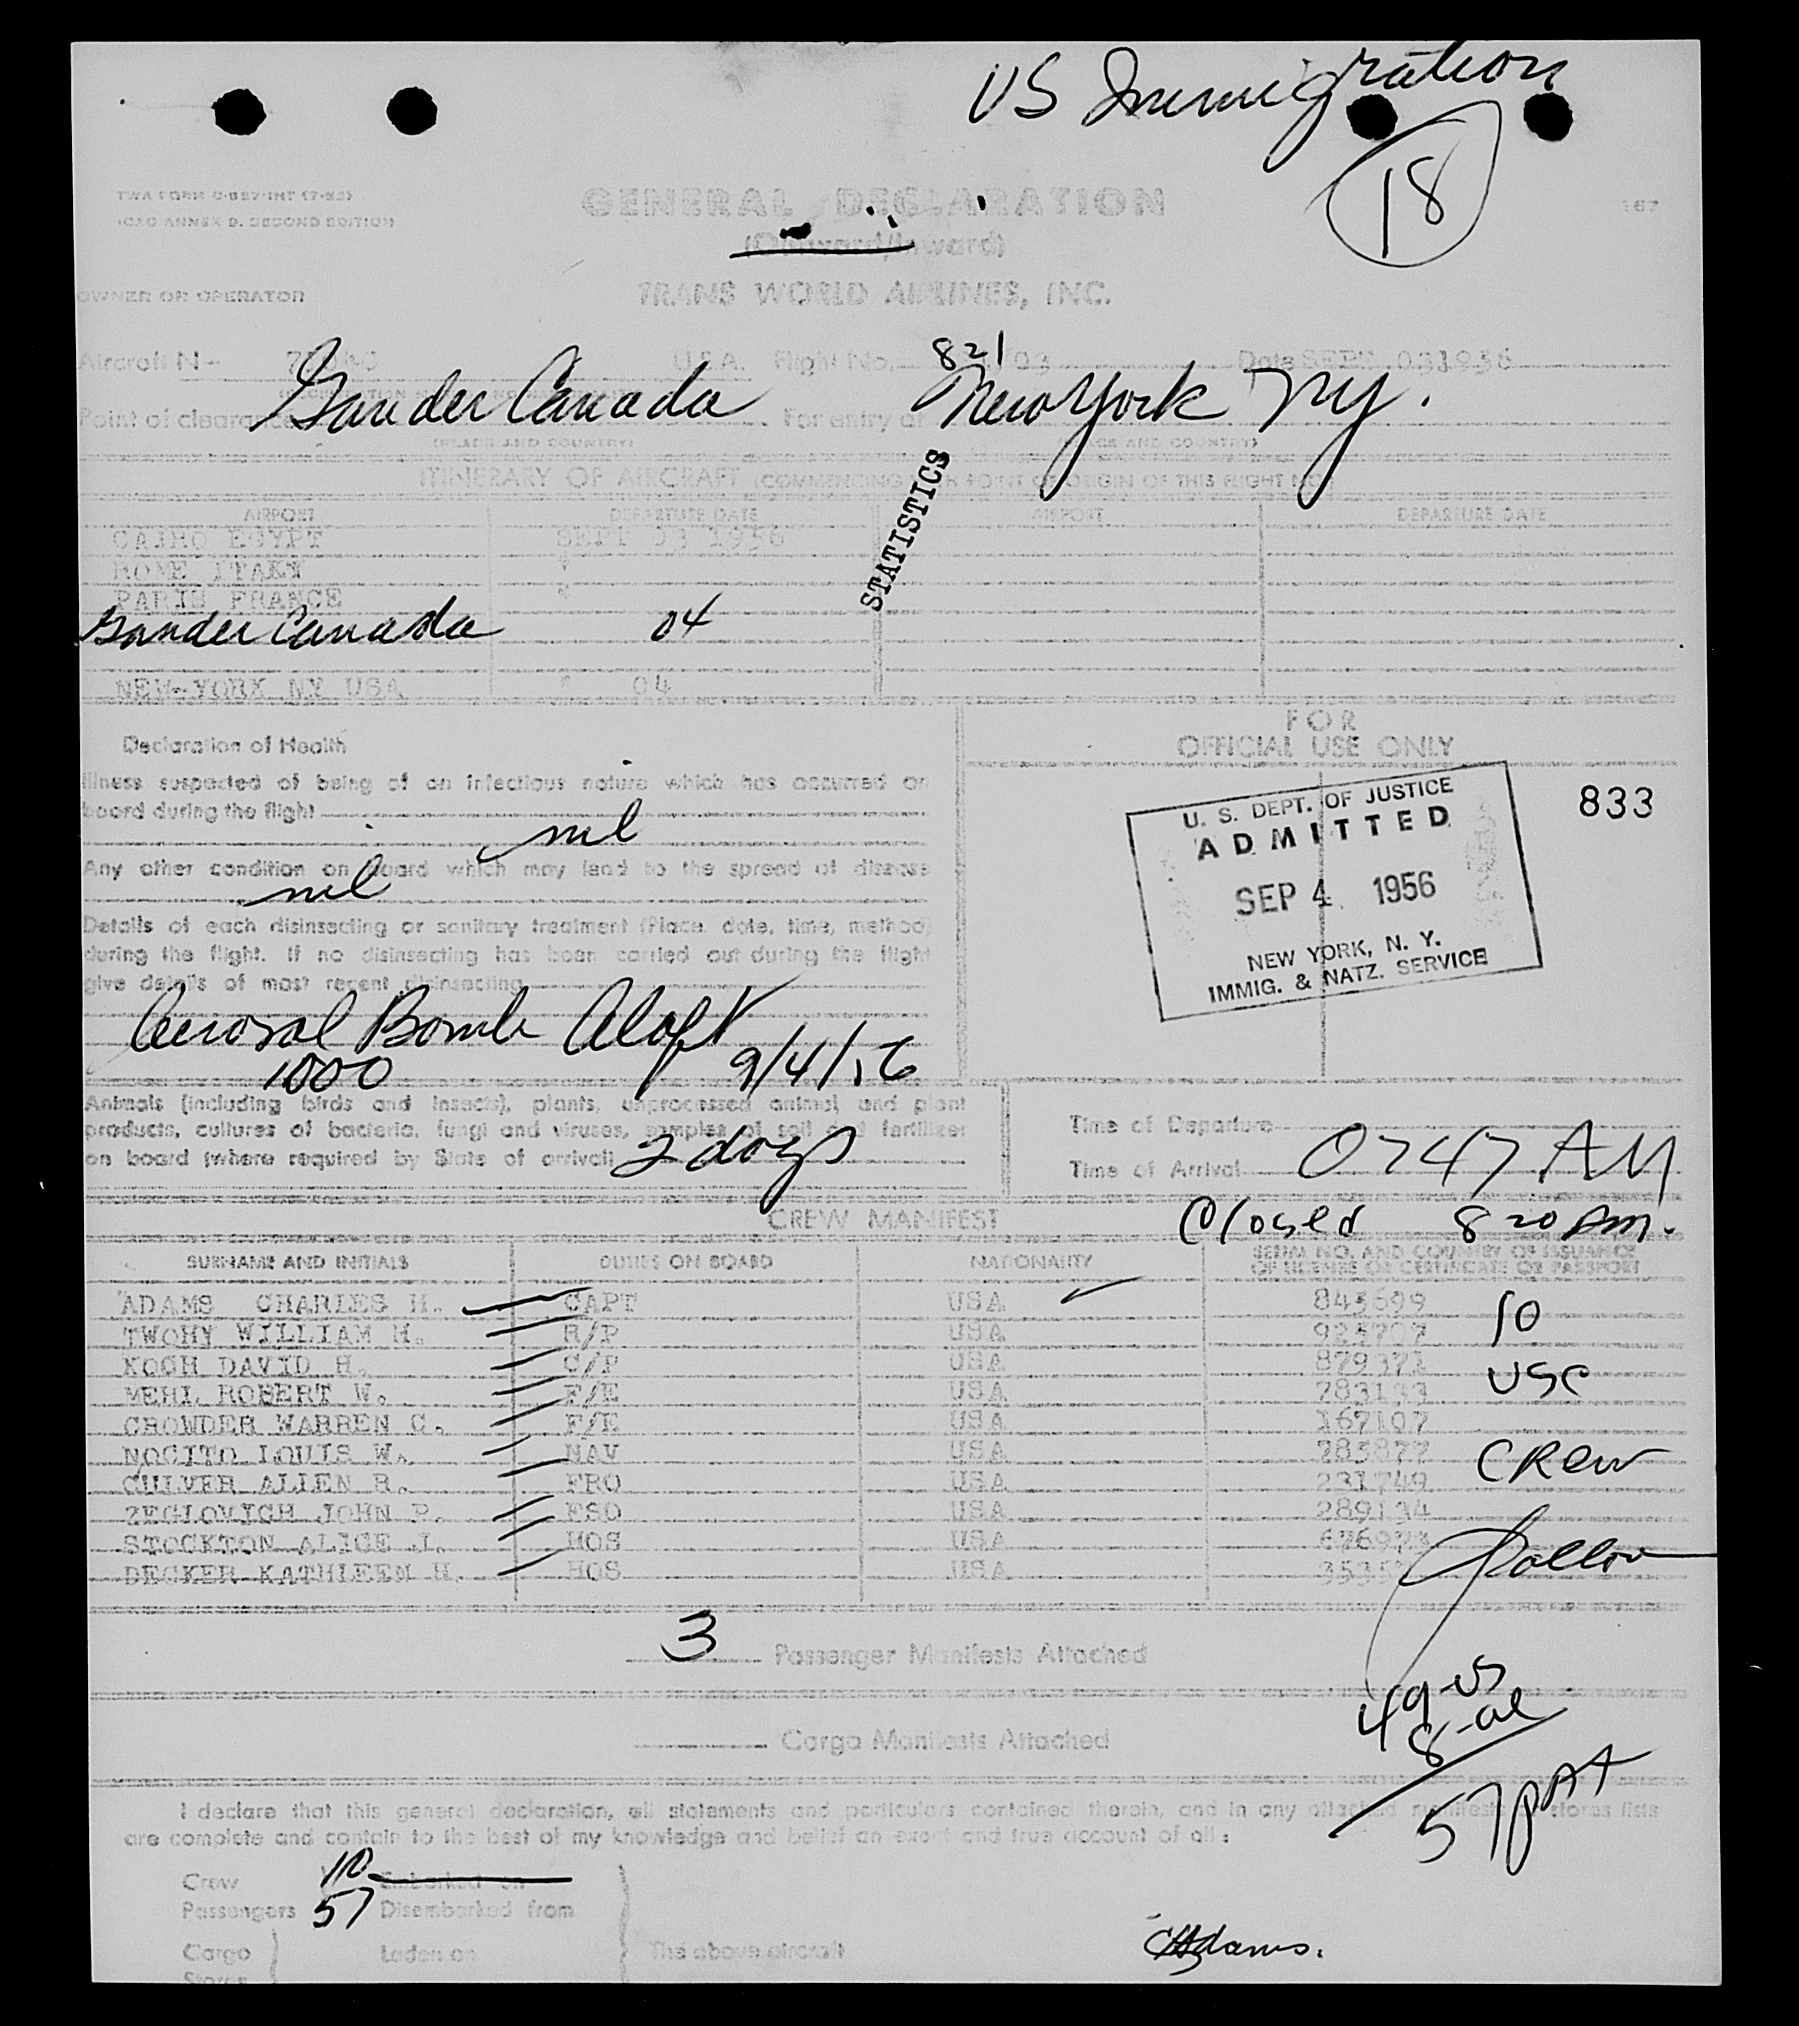 US Immigration
18
TWA FORM
ICAO ANNEX 9, SECOND EDITION
GENERAL DECLARATION
167
(Outward/Inward)
OWNER OR OPERATOR
TRANS WORLD AIRLINES, INC.
Aircraft N- U.S.A. Flight No. 821/03 Date SEPT 031956
Point of clearance Gander Canada For entry at New York NY.
(PLACE AND COUNTRY) (PLACE AND COUNTRY)
STATISTICS
ITINERARY OF AIRCRAFT (COMMENCING WITH POINT OF ORIGIN OF THIS FLIGHT NO.)
AIRPORT DEPARTURE DATE AIRPORT DEPARTURE DATE
CAIRO EGYPT SEPT 03 1956
ROME ITAKY "
PARIS FRANCE "
Gander Canada 04
NEW-YORK NY USA " 04
Declaration of Health
Illness suspected of being of an infectious nature which has occurred on
board during the flight
nil
Any other condition on board which may lead to the spread of disease
nil
Details of each disinsecting or sanitary treatment (Place, date, time, method)
during the flight. If no disinsecting has been carried out during the flight
give details of most recent disinsecting
Aerosol Bomb Aloft
1000 9/4/56
FOR
OFFICIAL USE ONLY
833
U. S. DEPT. OF JUSTICE
ADMITTED
SEP 4 1956
NEW YORK, N. Y.
IMMIG. & NATZ. SERVICE
Animals (including birds and insects), plants, unprocessed animal and plant
products, cultures of bacteria, fungi and viruses, samples of soil and fertilizer
on board (where required by State of arrival) 2 dogs
Time of Departure
Time of Arrival 0747 AM
Closed 820 AM.
CREW MANIFEST
SURNAME AND INITIALS DUTIES ON BOARD NATIONALITY SERIAL NO. AND COUNTRY OF ISSUANCE
OF LICENSE OR CERTIFICATE OR PASSPORT
ADAMS CHARLES H. CAPT USA 843699
TWOHY WILLIAM H. R/P USA 10
KOCH DAVID H. C/P USA
MEHL ROBERT W. F/E USA USC
CROWDER WARREN C. F/E USA 167107
NOCITO LOUIS W. NAV USA Crew
CULVER ALLEN R. FRO USA 231749
ZEGLOVICH JOHN P. FSO USA 289134
STOCKTON ALICE J. HOS USA
DECKER KATHLEEN H. HOS USA
3 Passenger Manifests Attached
49-US
8-al
57 pax
Cargo Manifests Attached
I declare that this general declaration, all statements and particulars contained therein, and in any attached manifests or stores lists
are complete and contain to the best of my knowledge and belief an exact and true account of all:
Crew 10 Embarked on
Passengers 57 Disembarked from
Cargo Laden on The above aircraft
Stores
CHAdams.